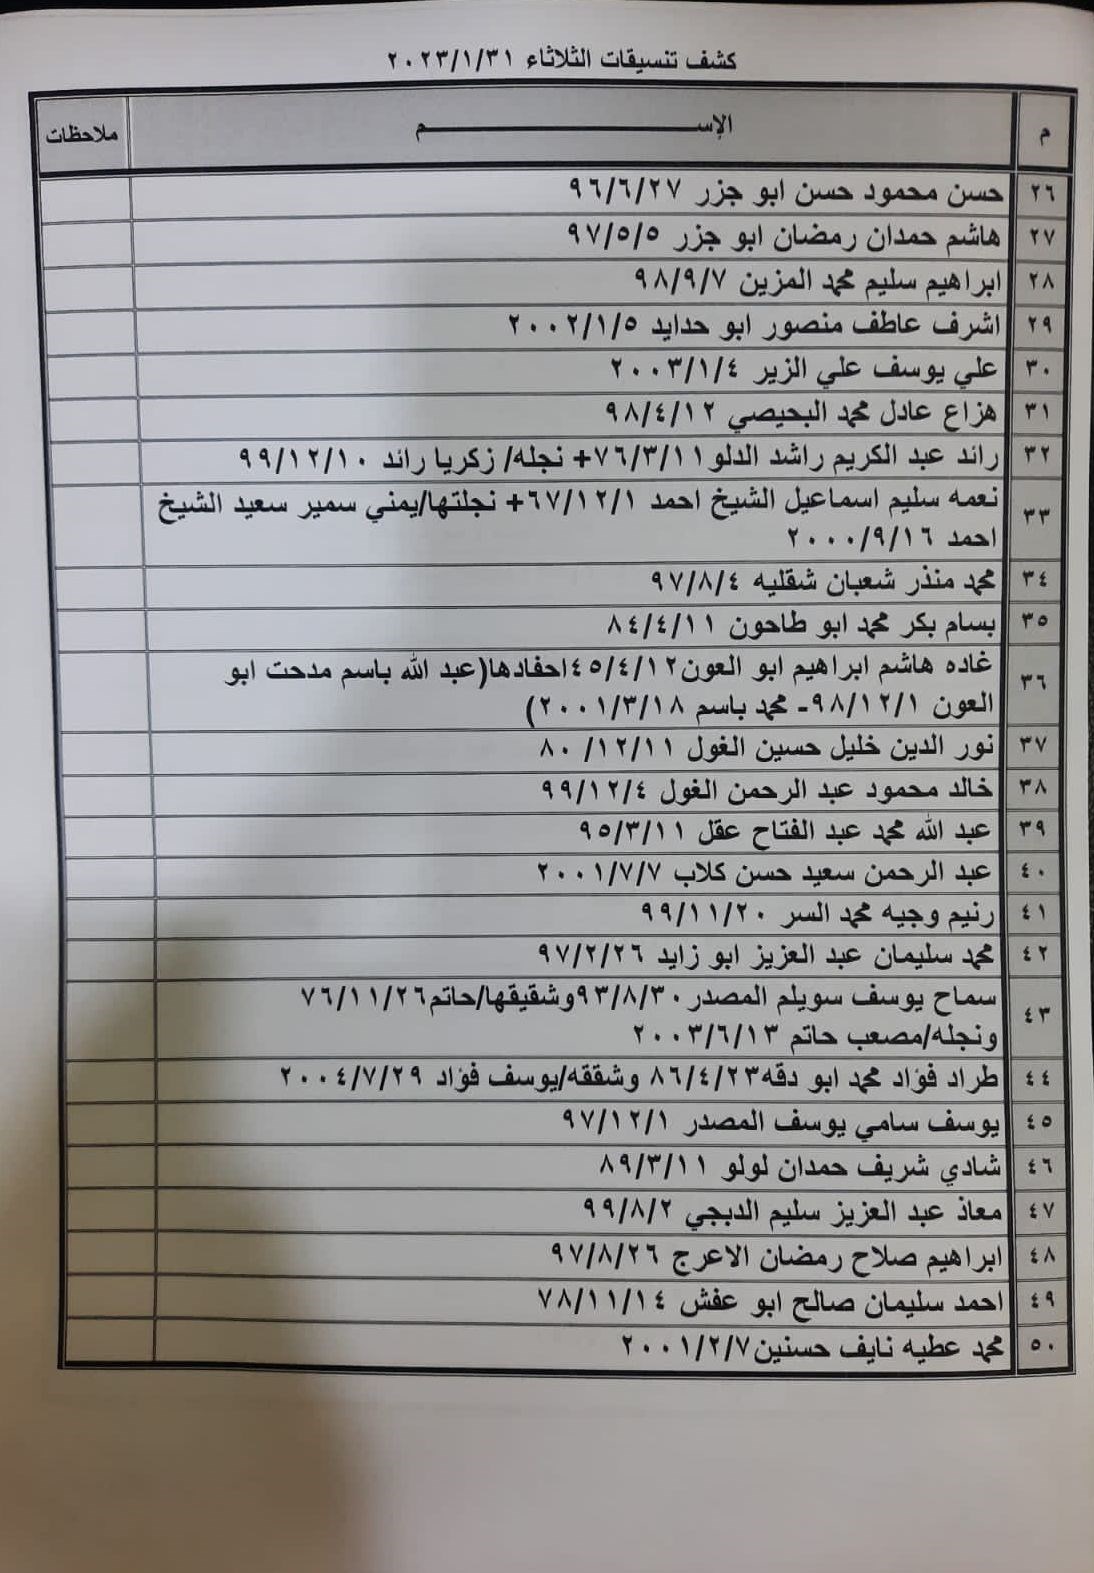 كشف تنسيقات الثلاثاء ٢٠٢٣/١/٣١
م الإســـــــــــــم ملاحظات
٢٦ حسن محمود حسن ابو جزر ٩٦/٦/٢٧
٢٧ هاشم حمدان رمضان ابو جزر ٩٧/٥/٥
٢٨ ابراهيم سليم محمد المزين ٩٨/٩/٧
٢٩ اشرف عاطف منصور ابو حدايد ٢٠٠٢/١/٥
٣٠ علي يوسف علي الزير ٢٠٠٣/١/٤
٣١ هزاع عادل محمد البحيصي ٩٨/٤/١٢
٣٢ رائد عبد الكريم راشد الدلو ٧٦/٣/١١+ نجله/ زكريا رائد ٩٩/١٢/١٠
٣٣ نعمه سليم اسماعيل الشيخ احمد ٦٧/١٢/١+ نجلتها/يمني سمير سعيد الشيخ
احمد ٢٠٠٠/٩/١٦
٣٤ محمد منذر شعبان شقليه ٩٧/٨/٤
٣٥ بسام بكر محمد ابو طاحون ٨٤/٤/١١
٣٦ غاده هاشم ابراهيم ابو العون٤٥/٤/١٢احفادها(عبد الله باسم مدحت ابو
العون ٩٨/١٢/١- محمد باسم ٢٠٠١/٣/١٨)
٣٧ نور الدين خليل حسين الغول ٨٠/١٢/١١
٣٨ خالد محمود عبد الرحمن الغول ٩٩/١٢/٤
٣٩ عبد الله محمد عبد الفتاح عقل ٩٥/٣/١١
٤٠ عبد الرحمن سعيد حسن كلاب ٢٠٠١/٧/٧
٤١ رنيم وجيه محمد السر ٩٩/١١/٢٠
٤٢ محمد سليمان عبد العزيز ابو زايد ٩٧/٢/٢٦
٤٣ سماح يوسف سويلم المصدر٩٣/٨/٣٠وشقيقها/حاتم٧٦/١١/٢٦
ونجله/مصعب حاتم ٢٠٠٣/٦/١٣
٤٤ طراد فؤاد محمد ابو دقه٨٦/٤/٢٣ وشققه/يوسف فؤاد ٢٠٠٤/٧/٢٩
٤٥ يوسف سامي يوسف المصدر ٩٧/١٢/١
٤٦ شادي شريف حمدان لولو ٨٩/٣/١١
٤٧ معاذ عبد العزيز سليم الدبجي ٩٩/٨/٢
٤٨ ابراهيم صلاح رمضان الاعرج ٩٧/٨/٢٦
٤٩ احمد سليمان صالح ابو عفش ٧٨/١١/١٤
٥٠ محمد عطيه نايف حسنين٢٠٠١/٢/٧